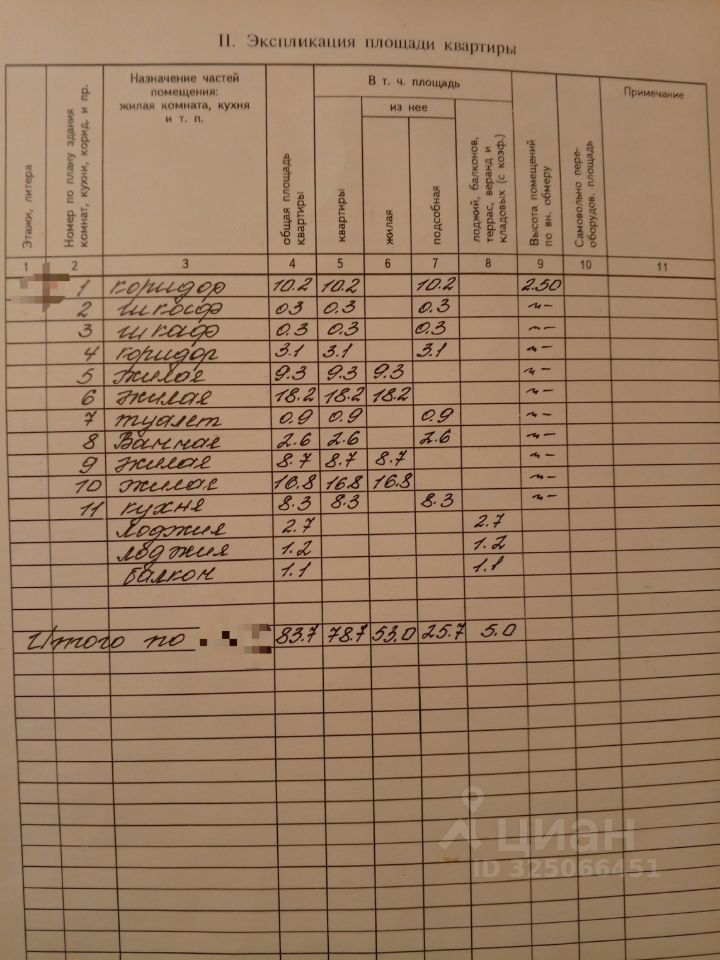 II. Экспликация площади квартиры
Этажи, литера
Номер по плану здания комнат, кухни, корид. и пр.
Назначение частей
помещения:
жилая комната, кухня
и т. п.
общая площадь квартиры
В т. ч. площадь
квартиры
из нее
жилая
подсобная
лоджий, балконов, террас, веранд и кладовых (с коэф.)
Высота помещений по вн. обмеру
Самовольно пере- оборудов. площадь
Примечание
1 2 3 4 5 6 7 8 9 10 11
1 коридор 10.2 10.2 10.2 2.50
2 шкаф 0.3 0.3 0.3 -"-
3 шкаф 0.3 0.3 0.3 -"-
4 коридор 3.1 3.1 3.1 -"-
5 жилая 9.3 9.3 9.3 -"-
6 жилая 18.2 18.2 18.2 -"-
7 туалет 0.9 0.9 0.9 -"-
8 Ванная 2.6 2.6 2.6 -"-
9 жилая 8.7 8.7 8.7 -"-
10 жилая 16.8 16.8 16.8 -"-
11 кухня 8.3 8.3 8.3 -"-
Лоджия 2.7 2.7
лоджия 1.2 1.2
балкон 1.1 1.1
Итого по 83.7 78.7 53.0 25.7 5.0
циан
ID 325066451